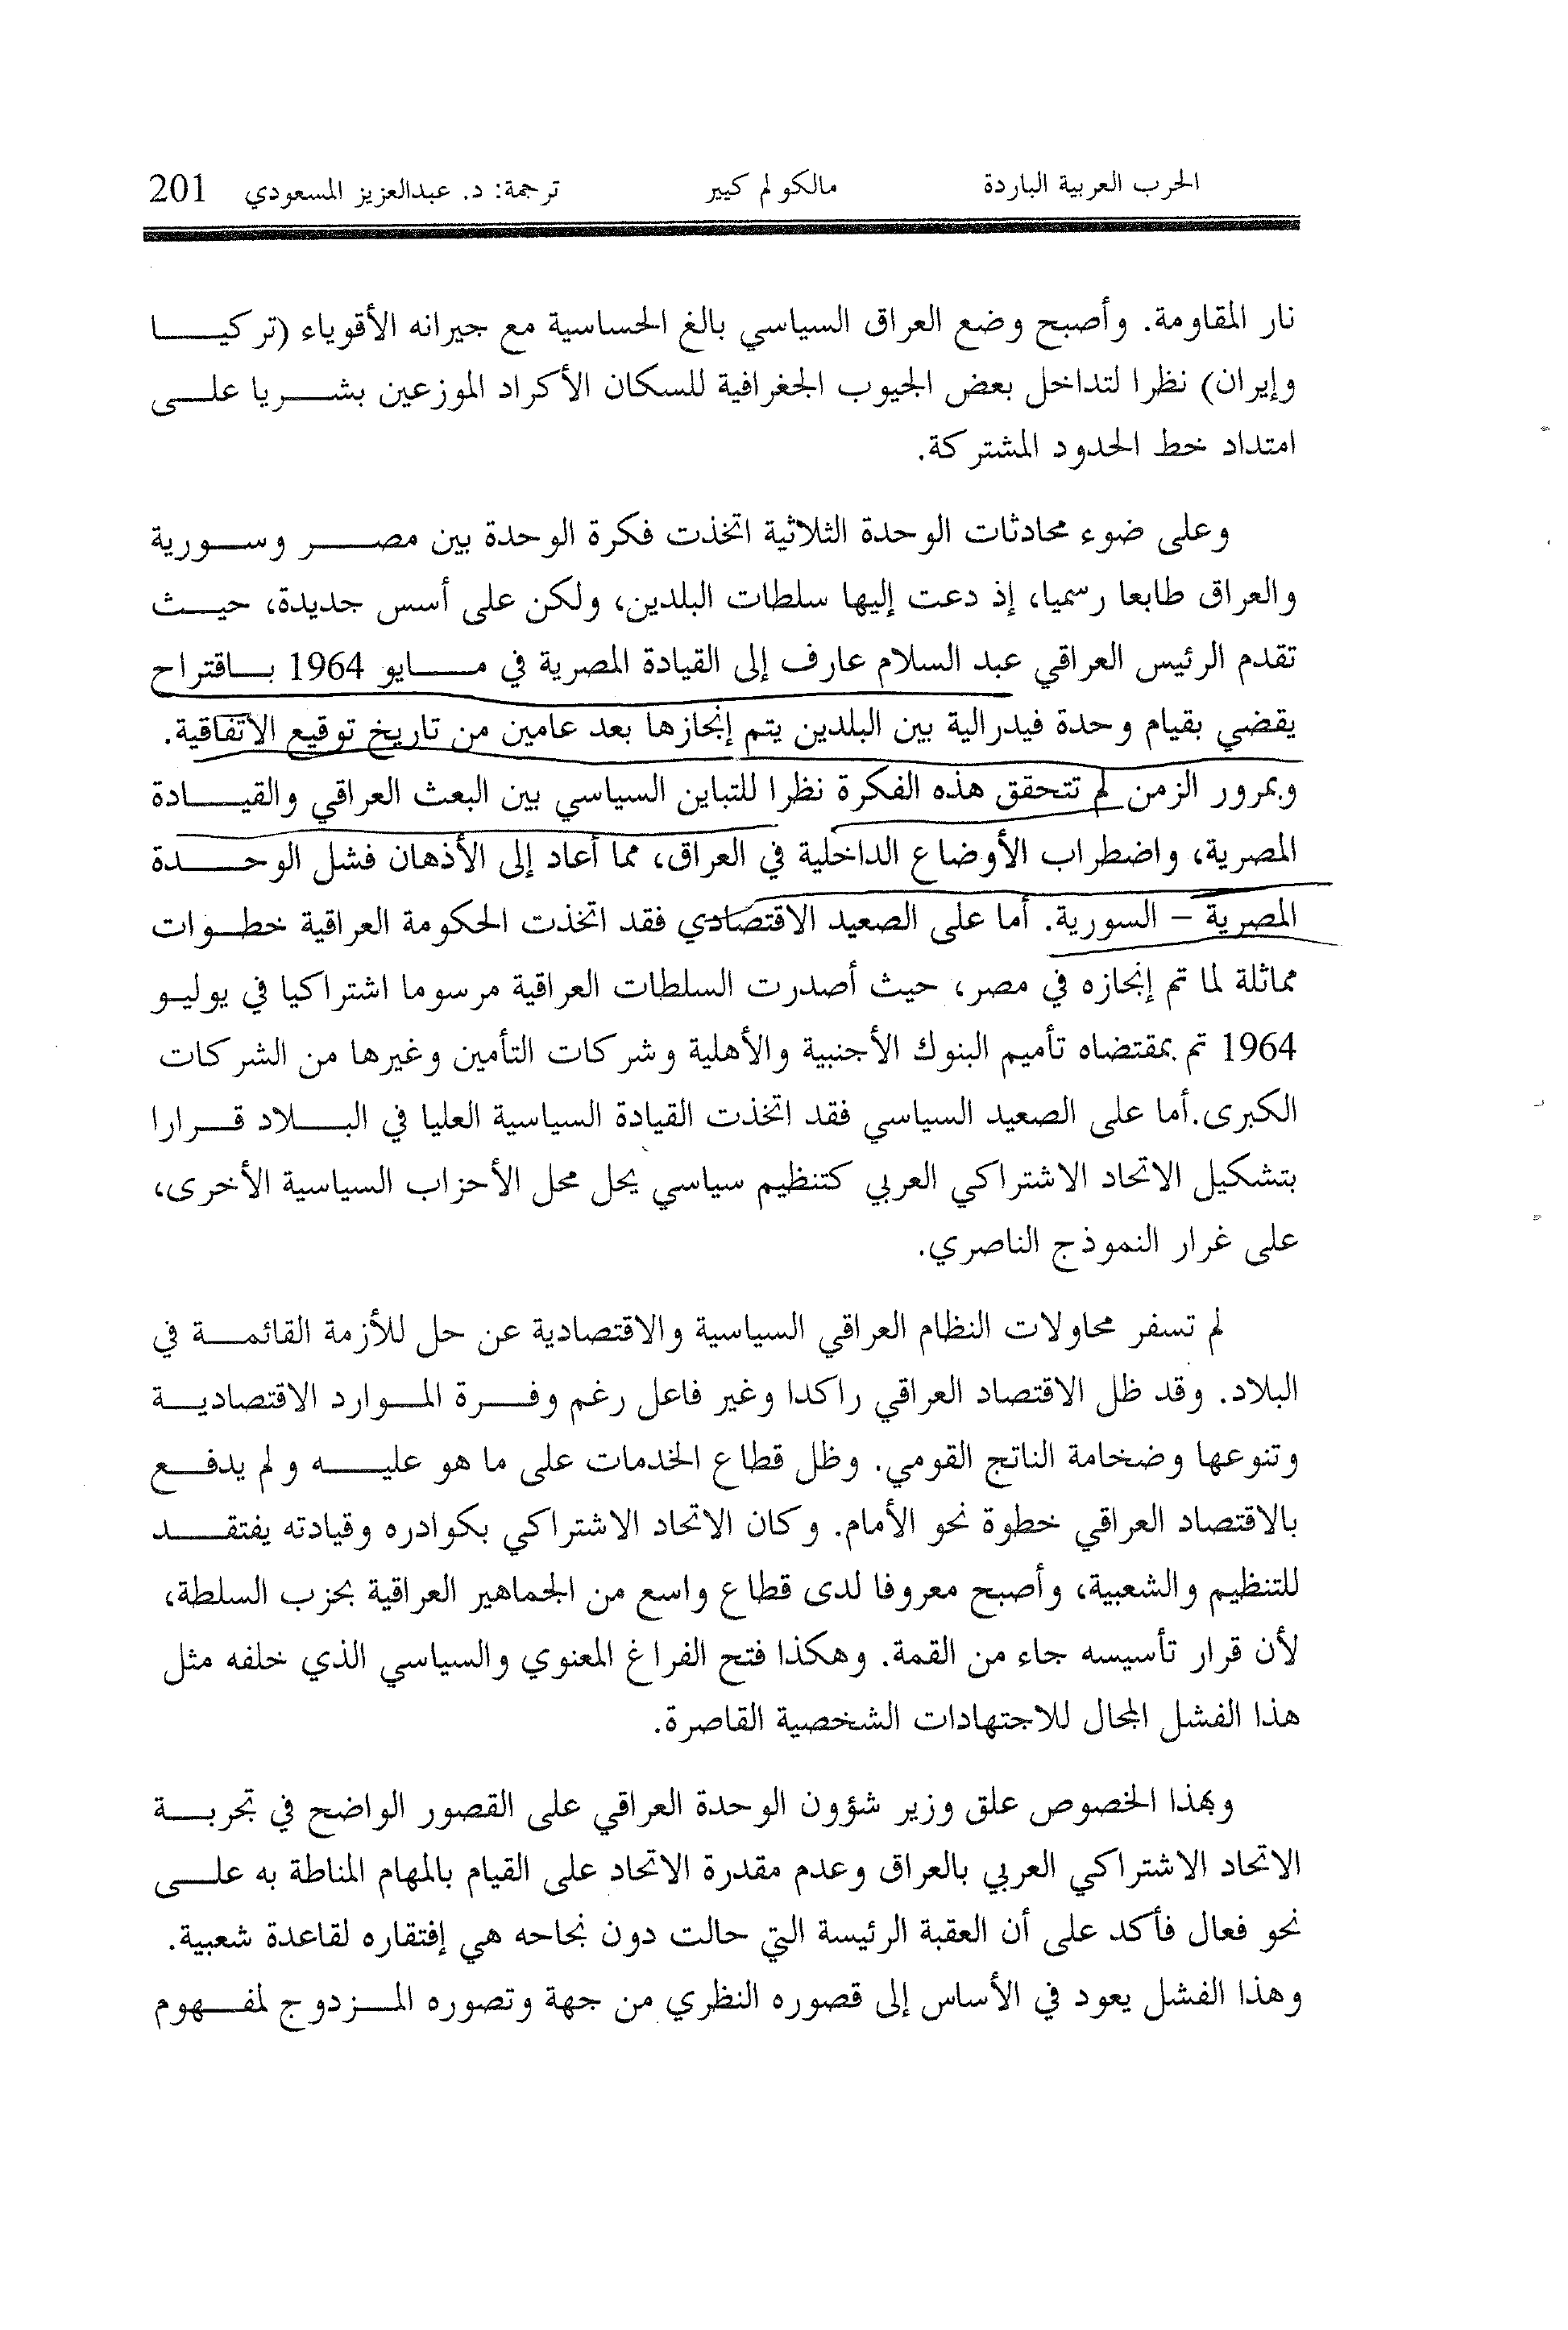 الحرب العربية الباردة مالكولم كيير ترجمة: د. عبدالعزيز المسعودي 201
نار المقاومة. وأصبح وضع العراق السياسي بالغ الحساسية مع جيرانه الأقوياء (تركيا
وإيران) نظرا لتداخل بعض الجيوب الجغرافية للسكان الأكراد الموزعين بشريا على
امتداد خط الحدود المشتركة.
وعلى ضوء محادثات الوحدة الثلاثية اتخذت فكرة الوحدة بين مصر وسورية
والعراق طابعا رسميا، إذ دعت إليها سلطات البلدين، ولكن على أسس جديدة، حيث
تقدم الرئيس العراقي عبد السلام عارف إلى القيادة المصرية في مايو 1964 باقتراح
يقضي بقيام وحدة فيدرالية بين البلدين يتم إنجازها بعد عامين من تاريخ توقيع الاتفاقية.
وبمرور الزمن لم تتحقق هذه الفكرة نظرا للتباين السياسي بين البعث العراقي والقيادة
المصرية، واضطراب الأوضاع الداخلية في العراق، مما أعاد إلى الأذهان فشل الوحدة
المصرية – السورية. أما على الصعيد الاقتصادي فقد اتخذت الحكومة العراقية خطوات
مماثلة لما تم إنجازه في مصر، حيث أصدرت السلطات العراقية مرسوما اشتراكيا في يوليو
1964 تم بمقتضاه تأميم البنوك الأجنبية والأهلية وشركات التأمين وغيرها من الشركات
الكبرى.أما على الصعيد السياسي فقد اتخذت القيادة السياسية العليا في البلاد قرارا
بتشكيل الاتحاد الاشتراكي العربي كتنظيم سياسي يحل محل الأحزاب السياسية الأخرى،
على غرار النموذج الناصري.
لم تسفر محاولات النظام العراقي السياسية والاقتصادية عن حل للأزمة القائمة في
البلاد. وقد ظل الاقتصاد العراقي راكدا وغير فاعل رغم وفرة الموارد الاقتصادية
وتنوعها وضخامة الناتج القومي. وظل قطاع الخدمات على ما هو عليه ولم يدفع
بالاقتصاد العراقي خطوة نحو الأمام. وكان الاتحاد الاشتراكي بكوادره وقيادته يفتقد
للتنظيم والشعبية، وأصبح معروفا لدى قطاع واسع من الجماهير العراقية بحزب السلطة،
لأن قرار تأسيسه جاء من القمة. وهكذا فتح الفراغ المعنوي والسياسي الذي خلفه مثل
هذا الفشل المجال للاجتهادات الشخصية القاصرة.
وبهذا الخصوص علق وزير شؤون الوحدة العراقي على القصور الواضح في تجربة
الاتحاد الاشتراكي العربي بالعراق وعدم مقدرة الاتحاد على القيام بالمهام المناطة به على
نحو فعال فأكد على أن العقبة الرئيسة التي حالت دون نجاحه هي إفتقاره لقاعدة شعبية.
وهذا الفشل يعود في الأساس إلى قصوره النظري من جهة وتصوره المزدوج لمفهوم